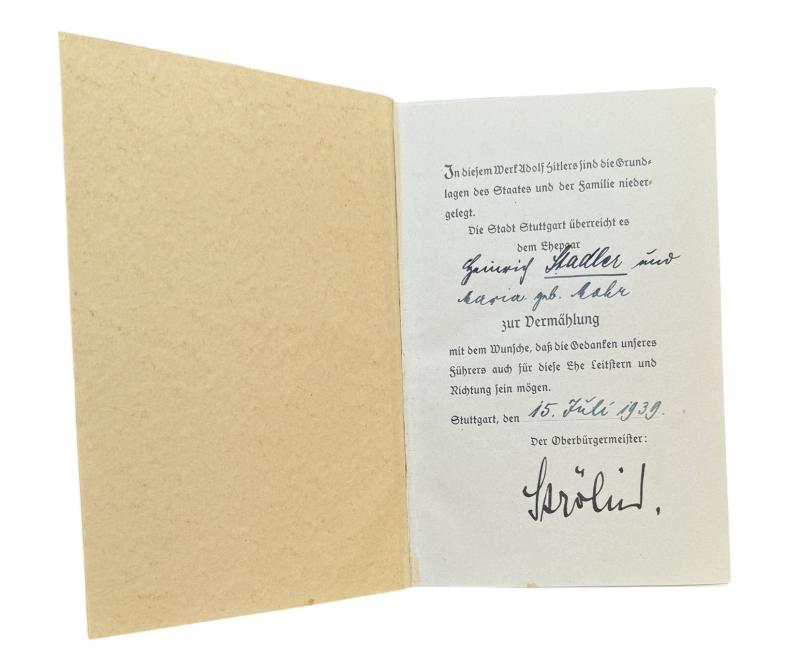 In diesem Werk Adolf Hitlers sind die Grund-
lagen des Staates und der Familie nieder-
gelegt.
Die Stadt Stuttgart überreicht es
dem Ehepaar
Heinrich Stadler und
Maria geb. Mohr
zur Vermählung
mit dem Wunsche, daß die Gedanken unseres
Führers auch für diese Ehe Leitstern und
Richtung sein mögen.
Stuttgart, den 15. Juli 1939.
Der Oberbürgermeister:
Strölin.